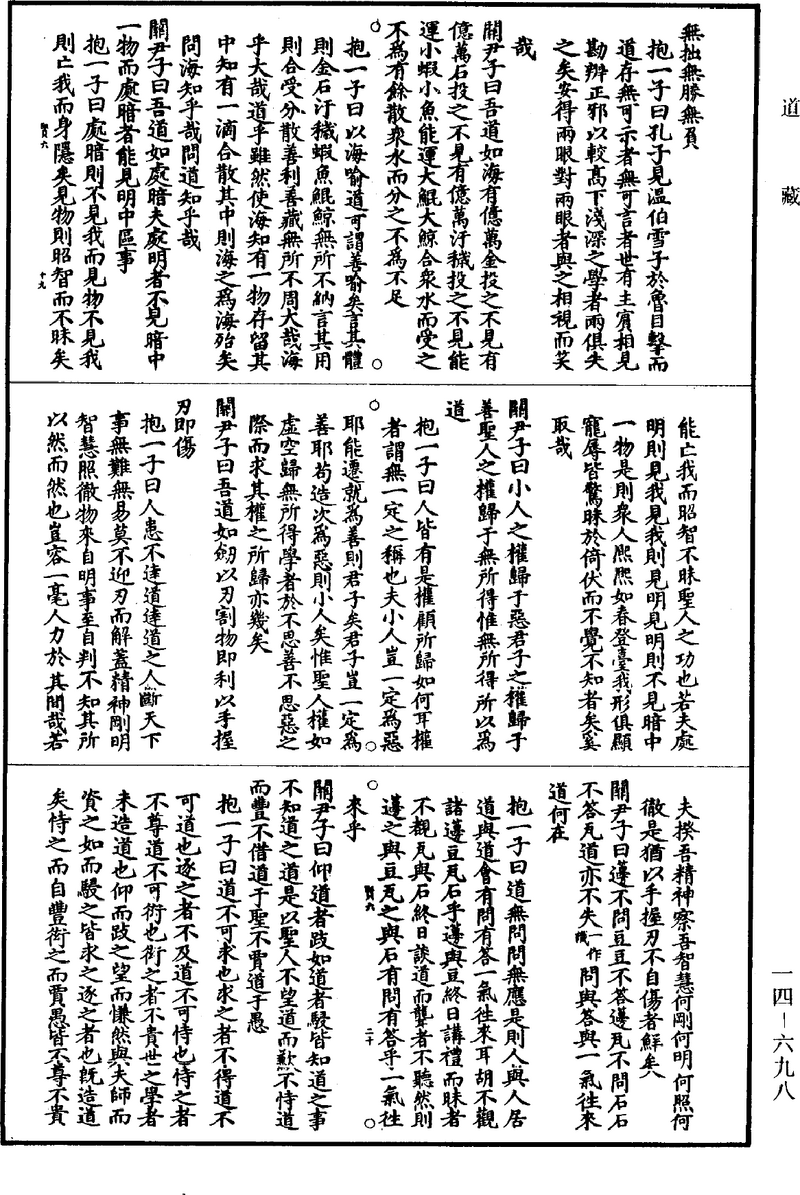 道藏
無拙無勝無負
抱一子曰孔子見溫伯雪子於魯目擊而
道存無可示者無可言者世有主賓相見
勘辨正邪以較高下淺深之學者兩俱失
之矣安得兩眼對兩眼者與之相視而笑
哉
關尹子曰吾道如海有億萬金投之不見有
億萬石投之不見有億萬汙穢投之不見能
運小蝦小魚能運大鯤大鯨合衆水而受之
不為有餘散衆水而分之不為不足
抱一子曰以海喻道可謂善喻矣言其體
則金石汙穢蝦魚鯤鯨無所不納言其用
則合受分散善利善藏無所不周大哉海
乎大哉道乎雖然使海知有一物存留其
中知有一滴合散其中則海之為海殆矣
問海知乎哉問道知乎哉
關尹子曰吾道如處暗夫處明者不見暗中
一物而處暗者能見明中區事
抱一子曰處暗則不見我而見物不見我
則亡我而身隱矣見物則昭智而不昧矣
賢六 十九
能亡我而昭智不昧聖人之功也若夫處
明則見我見我則見明見明則不見暗中
一物是則衆人熙熙如春登臺我形俱顯
寵辱皆驚昧於倚伏而不覺不知者矣奚
取哉
關尹子曰小人之權歸于惡君子之權歸于
善聖人之權歸于無所得惟無所得所以為
道
抱一子曰人皆有是權顧所歸如何耳權
者謂無一定之稱也夫小人豈一定為惡
耶能遷就為善則君子矣君子豈一定為
善耶苟造次為惡則小人矣惟聖人權如
虛空歸無所得學者於不思善不思惡之
際而求其權之所歸亦幾矣
關尹子曰吾道如劒以刃割物即利以手握
刃即傷
抱一子曰人患不達道達道之人斷天下
事無難無易莫不迎刃而解蓋精神剛明
智慧照徹物來自明事至自判不知其所
以然而然也豈容一毫人力於其間哉若
夫揆吾精神察吾智慧何剛何明何照何
徹是猶以手握刃不自傷者鮮矣
關尹子曰籩不問豆豆不答籩瓦不問石石
不答瓦道亦不失一作識問與答與一氣往來
道何在
抱一子曰道無問問無應是則人與人居
道與道會有問有答一氣往來耳胡不觀
諸籩豆瓦石乎籩與豆終日講禮而昧者
不觀瓦與石終日談道而聾者不聽然則
籩之與豆瓦之與石有問有答乎一氣往
賢六 二十
來乎
關尹子曰仰道者跂如道者駸皆知道之事
不知道之道是以聖人不望道而歉不恃道
而豐不借道于聖不賈道于愚
抱一子曰道不可求也求之者不得道不
可道也逐之者不及道不可恃也恃之者
不尊道不可衒也衒之者不貴世之學者
未造道也仰而跂之望而慊然與夫師而
資之如而駸之皆求之逐之者也旣造道
矣恃之而自豐衒之而賈愚皆不尊不貴
一四－六九八